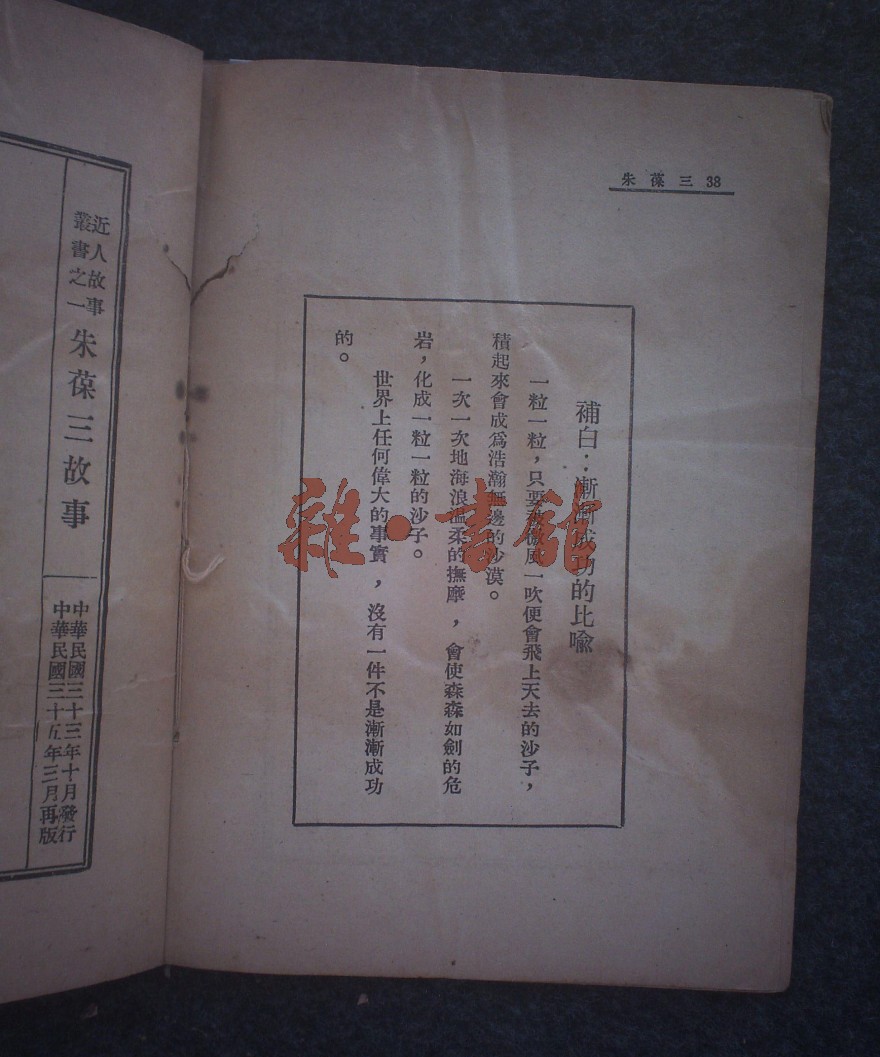 朱葆三 38
補白：漸漸成功的比喩
一粒一粒，只要被微風一吹便會飛上天去的沙子，
積起來會成爲浩瀚無邊的沙漠。
一次一次地海浪溫柔的撫摩，會使森森如劍的危
岩，化成一粒一粒的沙子。
世界上任何偉大的事實，沒有一件不是漸漸成功
的。
近人故事
叢書之一
朱葆三故事
中華民國三十三年十月發行
中華民國三十五年三月再版
雜·書館